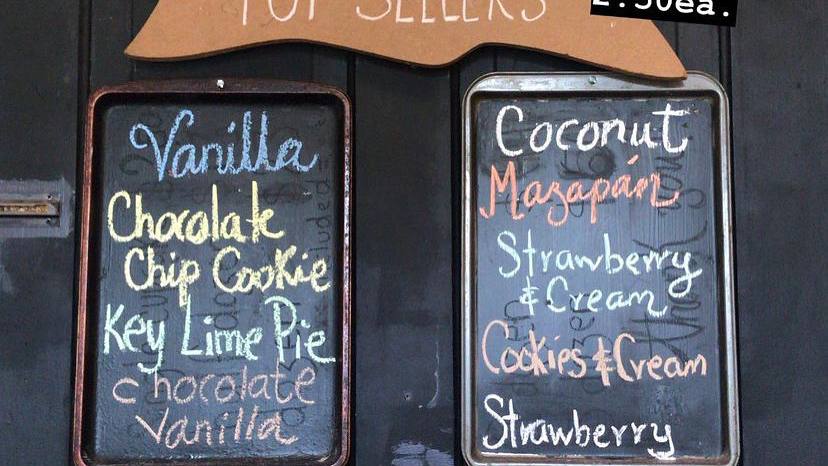 TOP SELLERS
2.50ea.
Vanilla
Chocolate
Chip Cookie
Key Lime Pie
chocolate
Vanilla
Coconut
Mazapán
Strawberry
& Cream
Cookies & Cream
Strawberry